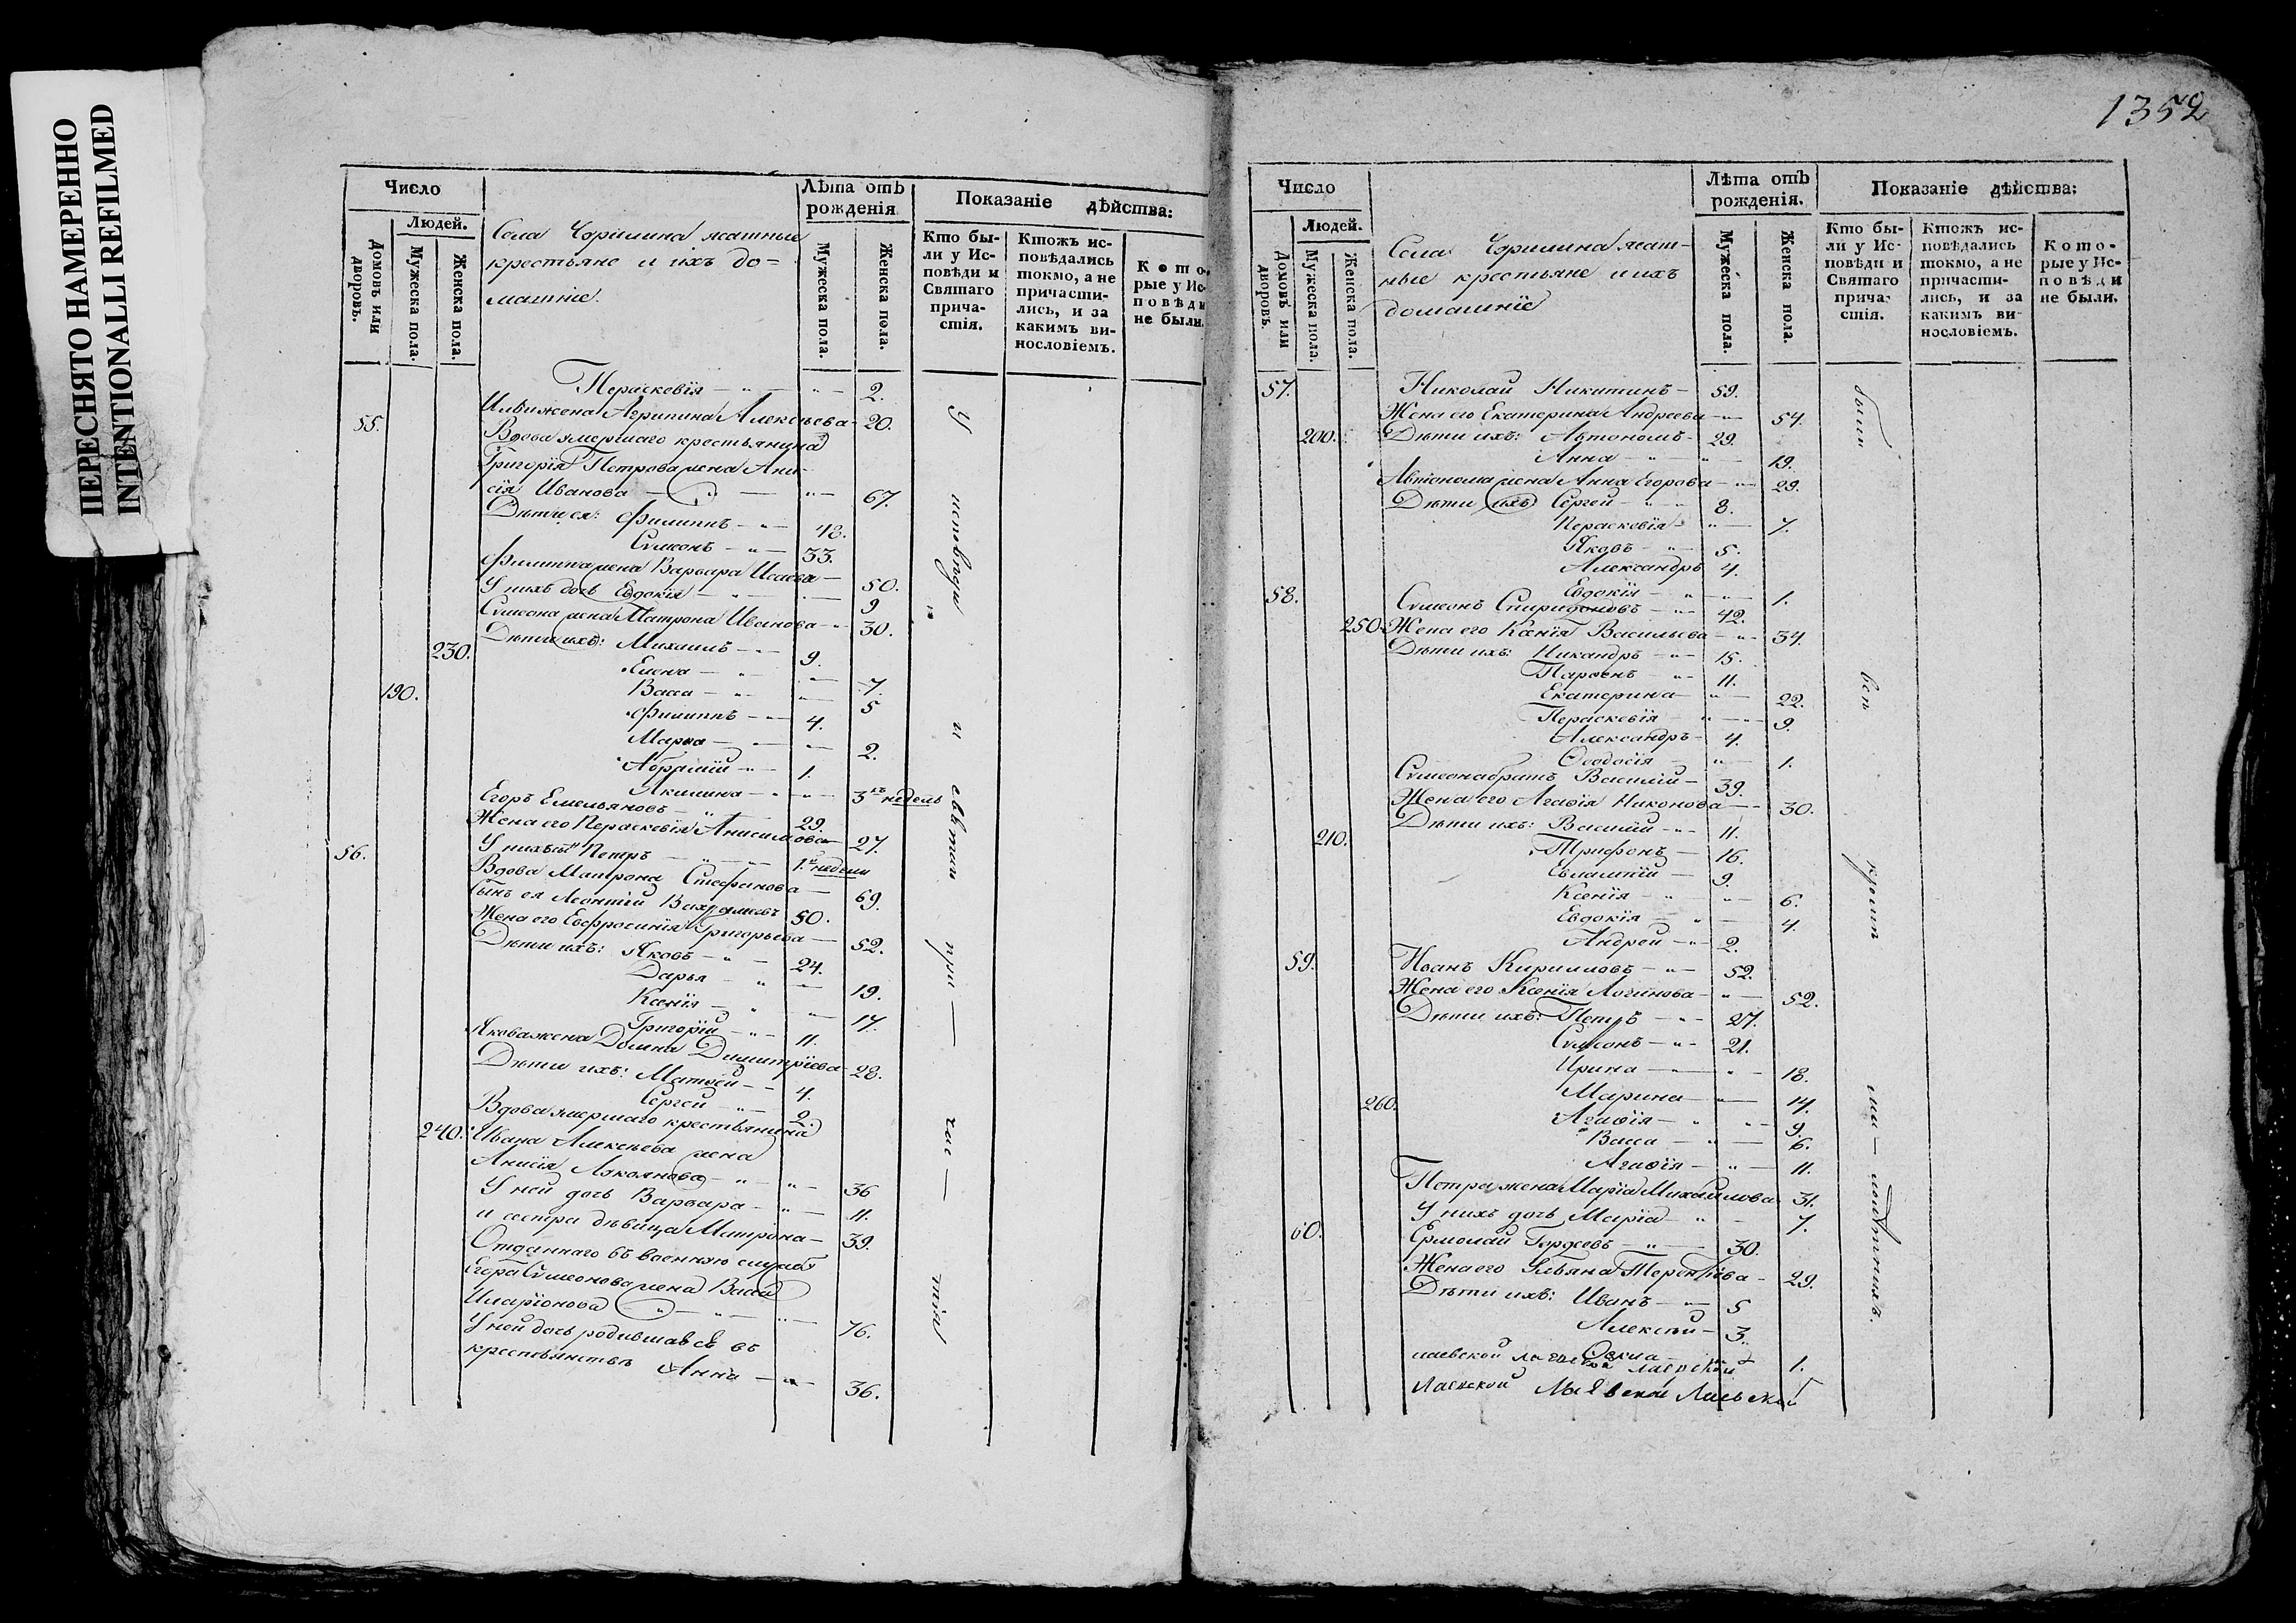 ПЕРЕСНЯТО НАМЕРЕННО
INTENTIONALLI REFILMED
Число
Людей.
Домовъ или дворовъ.
Мужеска пола.
Женска пола.
Села Чоршина ясашные
крестьяне и ихъ до=
машніе.
Лѣта отъ рожденія
Мужеска пола.
Женска пола.
Показаніе дѣйства:
Кто бы-
ли у Ис-
повѣди и
Святаго
прича-
стія.
Ктожъ ис-
повѣдались
токмо, а не
причасти-
лись, и за
какимъ ви-
нословіемъ.
Кото-
рые у Ис-
повѣди
не были.
Параскевія — 2.
Ильи жена Агрипина Алексѣева 20.
55. Вдова умершаго крестьянина
Григорія Петрова жена Ани-
сія Иванова — 67.
Дѣти ея: Филиппъ — 48.
Сѵмеонъ — 33.
Филиппа жена Варвара Исаева — 50.
У нихъ дочь Евдокія — 9
Сѵмеона жена Матрона Иванова — 30.
230. Дѣти ихъ: Михаилъ — 9.
Елена — 7.
190. Васса — 5
Филиппъ — 4.
Марѳа — 2.
Абрамій — 1.
Акилина — 3хъ недель
Егоръ Емельяновъ — 29.
Жена его Параскевія Анисимова 27.
У нихъ сынъ Петръ — 1. недели
56. Вдова Матрона Стефанова — 69.
Сынъ ея Леонтій Вахрамеевъ 50.
Жена его Евфросинія Григорьева — 52.
Дѣти ихъ: Яковъ — 24.
Дарья — 19.
Ксенія — 17.
Григорій — 11.
Якова жена Домна Димитріева 28.
Дѣти ихъ: Матѳей — 4.
Сергей — 2.
Вдова умершаго крестьянина
240. Ивана Алексѣева жена
Анисія Лукоянова — 36
У ней дочь Варвара — 11.
и сестра дѣвица Матрона — 39.
Отданнаго въ военную службу
Егора Сѵмеонова жена Васса
Иларіонова — 76.
У ней дочь родившаяся въ
крестьянствѣ Анна — 36.
У исповѣди и святаго при — час — тія
1352
Число
Людей.
Домовъ или дворовъ.
Мужеска пола.
Женска пола.
Села Чоршина ясаш-
ные крестьяне и ихъ
домашніе
Лѣта отъ рожденія.
Мужеска пола.
Женска пола.
Показаніе дѣйства:
Кто бы-
ли у Ис-
повѣди и
Святаго
прича-
стія.
Ктожъ ис-
повѣдались
токмо, а не
причасти-
лись, и за
какимъ ви-
нословіемъ.
Кото-
рые у Ис-
повѣди
не были.
57. Николай Никитинъ — 59.
Жена его Екатерина Андреева — 54.
200. Дѣти ихъ: Автономъ — 29.
Анна — 19.
Автонома жена Анна Егорова — 29.
Дѣти ихъ Сергей — 8.
Параскевія — 7.
Яковъ — 5.
Александръ 4.
Евдокія — 1.
58. Сѵмеонъ Спиридоновъ — 42.
250. Жена его Ксенія Васильева — 34.
Дѣти ихъ: Никандръ — 15.
Парѳенъ — 11.
Екатерина — 22.
Параскевія — 9.
Александръ — 4.
Ѳеодосія — 1.
Сѵмеона братъ Василій — 39.
Жена его Агаѳія Никонова — 30.
210. Дѣти ихъ: Василій — 11.
Трифонъ — 16.
Евлампій — 9.
Ксенія — 6.
Евдокія — 4.
Андрей — 2.
59. Иванъ Кирилловъ — 52.
Жена его Ксенія Логинова — 52.
Дѣти ихъ: Петръ — 27.
Сѵмеонъ — 21.
Ирина — 18.
260. Марина — 14.
Агаѳія — 9.
Васса — 6.
Агаѳія — 11.
Петра жена Марія Михайлова 31.
У нихъ дочь Марія — 7.
60. Ермолай Гордеевъ — 30.
Жена его Ульяна Терентіева — 29.
Дѣти ихъ: Иванъ — 5
Алексѣй — 3.
Ѳекла — 1.
были всѣ кромѣ ма — лолѣтнихъ.